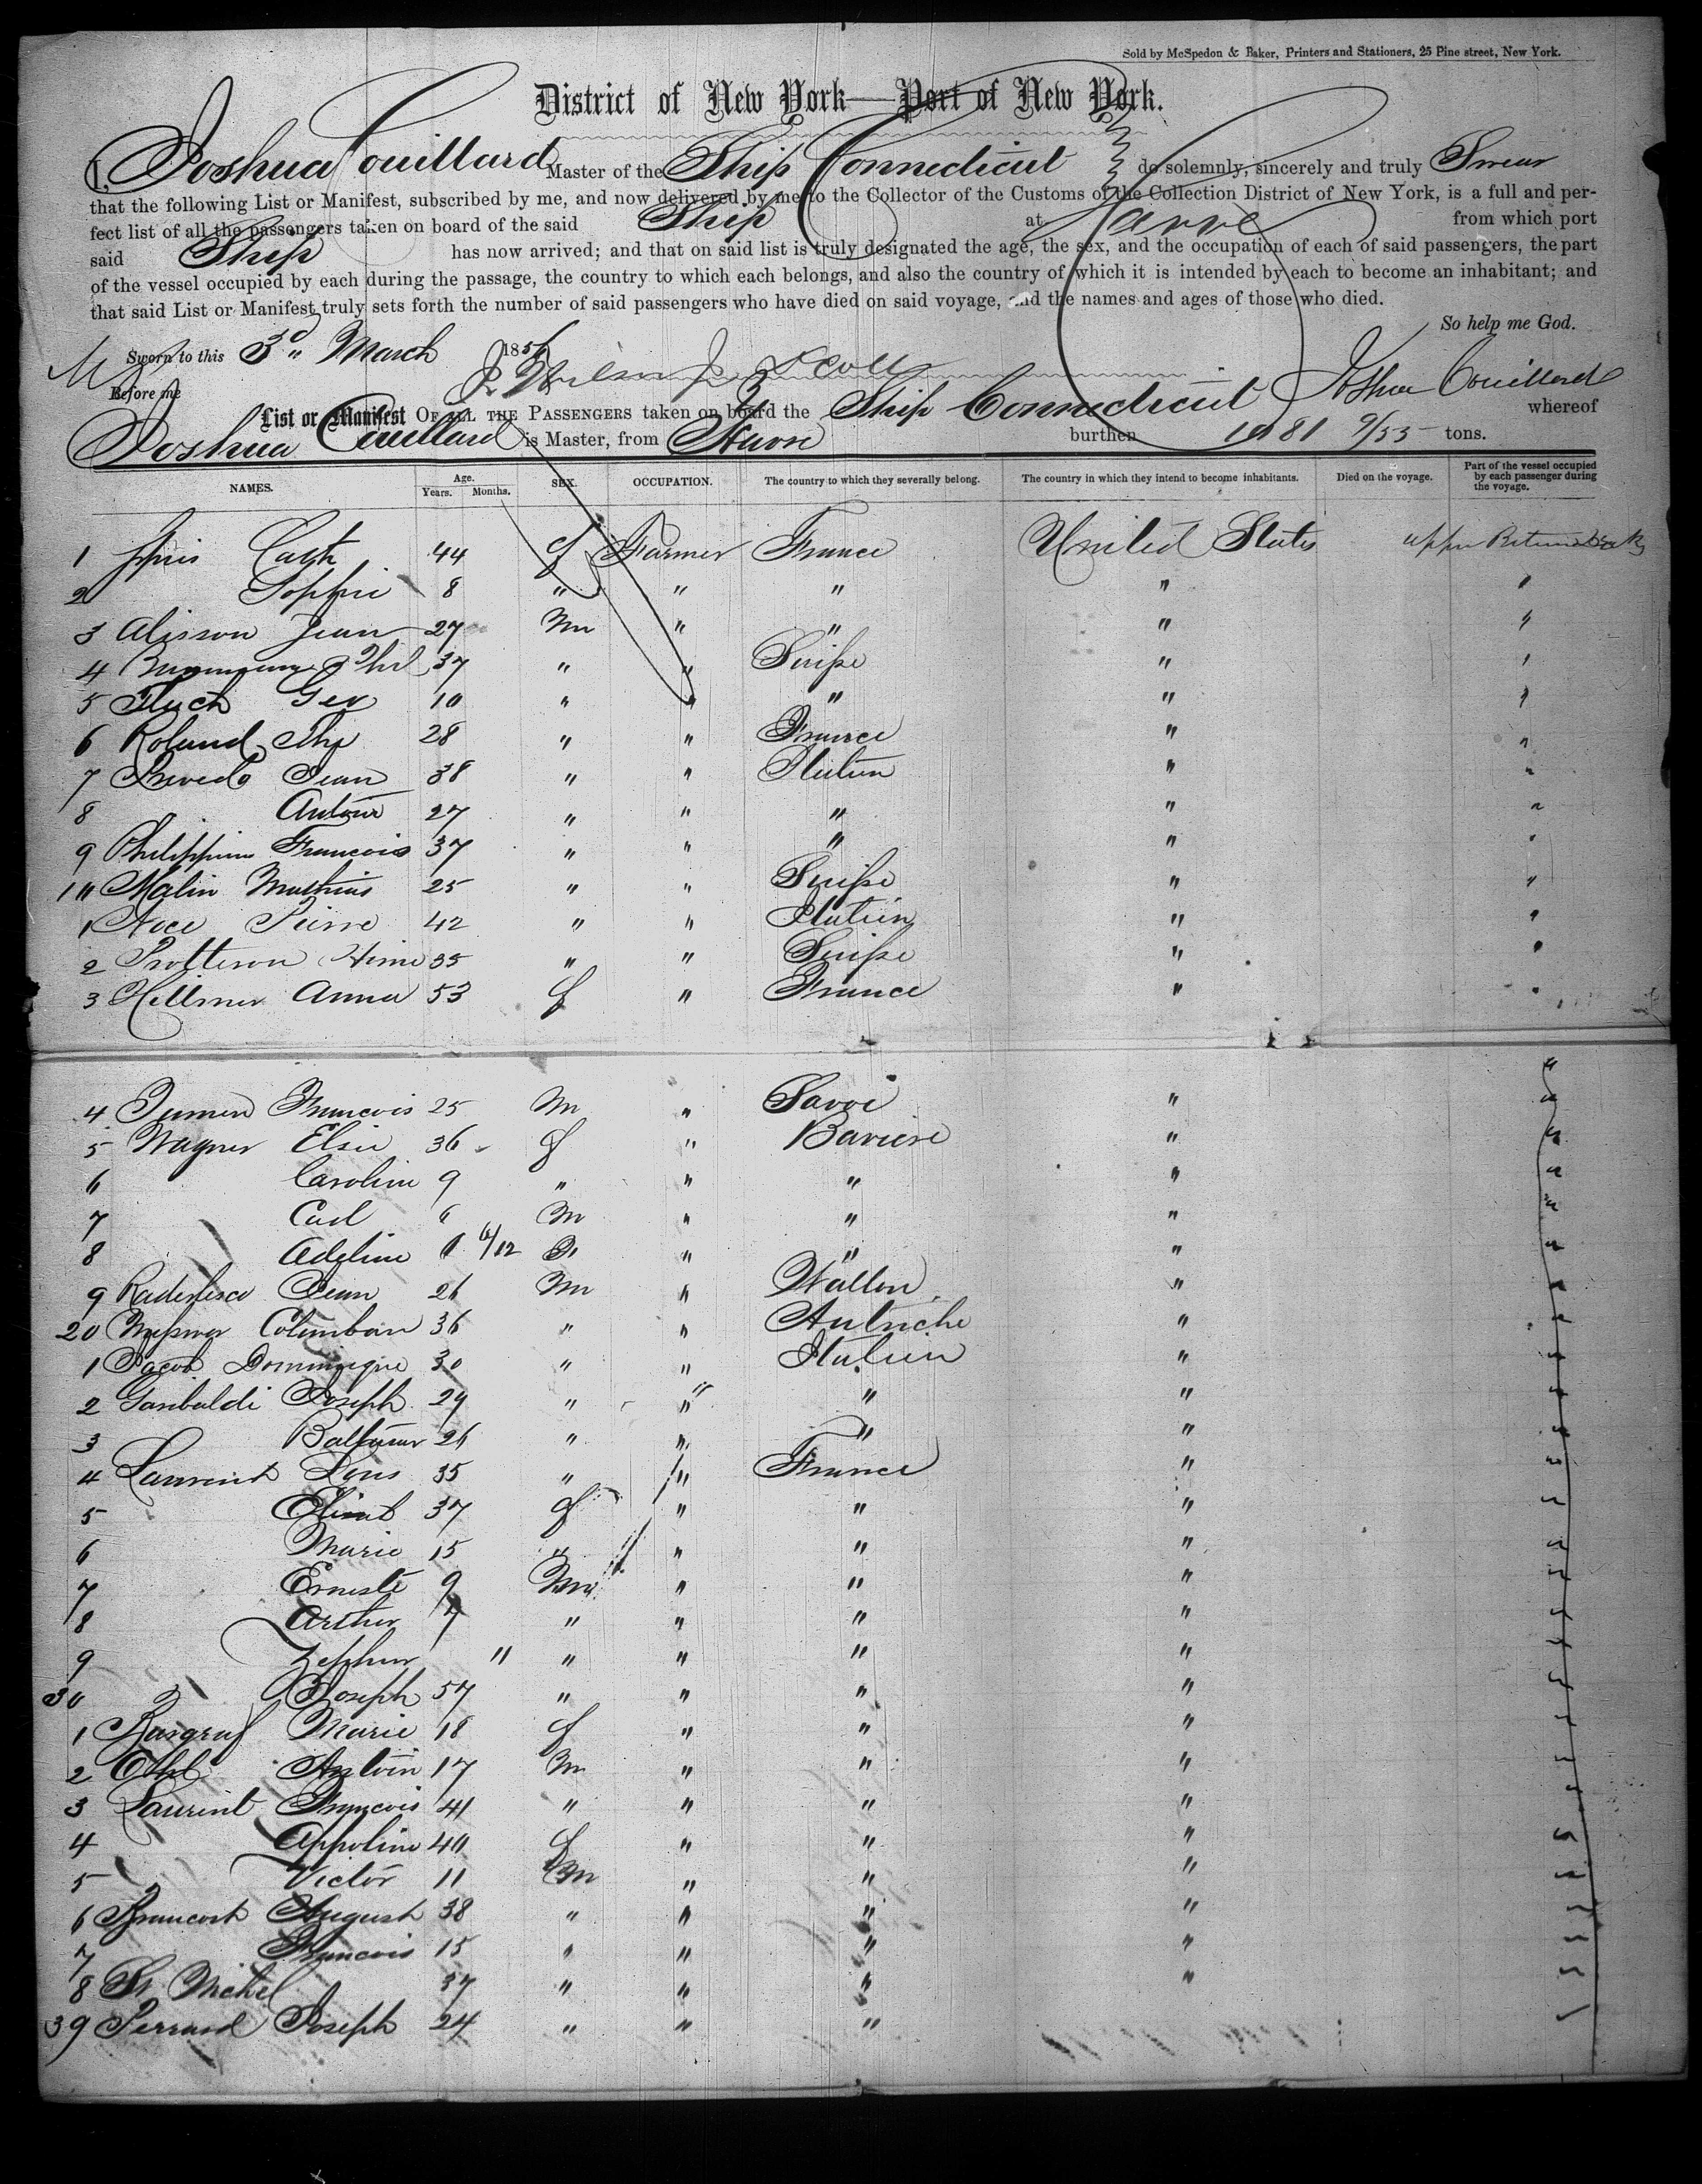 Sold by McSpedon & Baker, Printers and Stationers, 25 Pine street, New York.
District of New York—Port of New York.
I, Joshua Couillard Master of the Ship Connecticut do solemnly, sincerely and truly Swear
that the following List or Manifest, subscribed by me, and now delivered by me to the Collector of the Customs of the Collection District of New York, is a full and per-
fect list of all the passengers taken on board of the said Ship at Havre from which port
said Ship has now arrived; and that on said list is truly designated the age, the sex, and the occupation of each of said passengers, the part
of the vessel occupied by each during the passage, the country to which each belongs, and also the country of which it is intended by each to become an inhabitant; and
that said List or Manifest truly sets forth the number of said passengers who have died on said voyage, and the names and ages of those who died.
So help me God.
Sworn to this 3d " March 1856
Before me
Joshua Couillard
List or Manifest OF ALL THE PASSENGERS taken on board the Ship Connecticut whereof
Joshua Couillard is Master, from Havre burthen 1081 9/55 tons.
NAMES. Age. Years. Months. SEX. OCCUPATION. The country to which they severally belong. The country in which they intend to become inhabitants. Died on the voyage. Part of the vessel occupied by each passenger during the voyage.
1 44 f Farmer France United States upper
2 Sophie 8 " " " " "
3 Alisson Jean 27 m " " " "
4 37 " " Suisse " "
5 Fluch Geo 10 " " " " "
6 Roland 28 " " France " "
7 Jean 38 " " Italien " "
8 Antoine 27 " " " " "
9 Philippine Francois 37 " " " " "
10 Malin Mathias 25 " " Suisse " "
1 Noce Pierre 42 " " Italien " "
2 35 " " Suisse " "
3 Hellmer Anna 53 f " France " "
4 Francois 25 m " Savoi " "
5 Wagner Elsie 36 f " Baviere " "
6 Caroline 9 " " " " "
7 Carl 6 m " " " "
8 Adeline 6/12 " " " "
9 Jean 26 m " Wallon " "
20 Columban 36 " " Autriche " "
1 Jacob Dominique 30 " " Italien " "
2 Garibaldi Joseph 29 " " " " "
3 26 " " " " "
4 Laurent Louis 35 " " France " "
5 37 f " " " "
6 Marie 15 " " " " "
7 Erneste 9 m " " " "
8 Arthur 7 " " " " "
9 Zephur 11 " " " " "
30 Joseph 57 " " " " "
1 Marie 18 f " " " "
2 Antoin 17 m " " " "
3 Laurent Francois 41 " " " " "
4 Appoline 40 f " " " "
5 Victor 11 m " " " "
6 August 38 " " " " "
7 Francois 15 " " " " "
8 St. Michel 37 " " " " "
39 Perraud Joseph 24 " " "